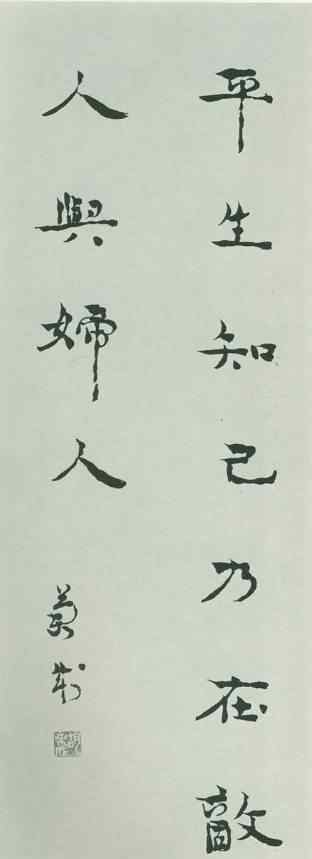 平生知己乃在敵
人與婦人
蘭成